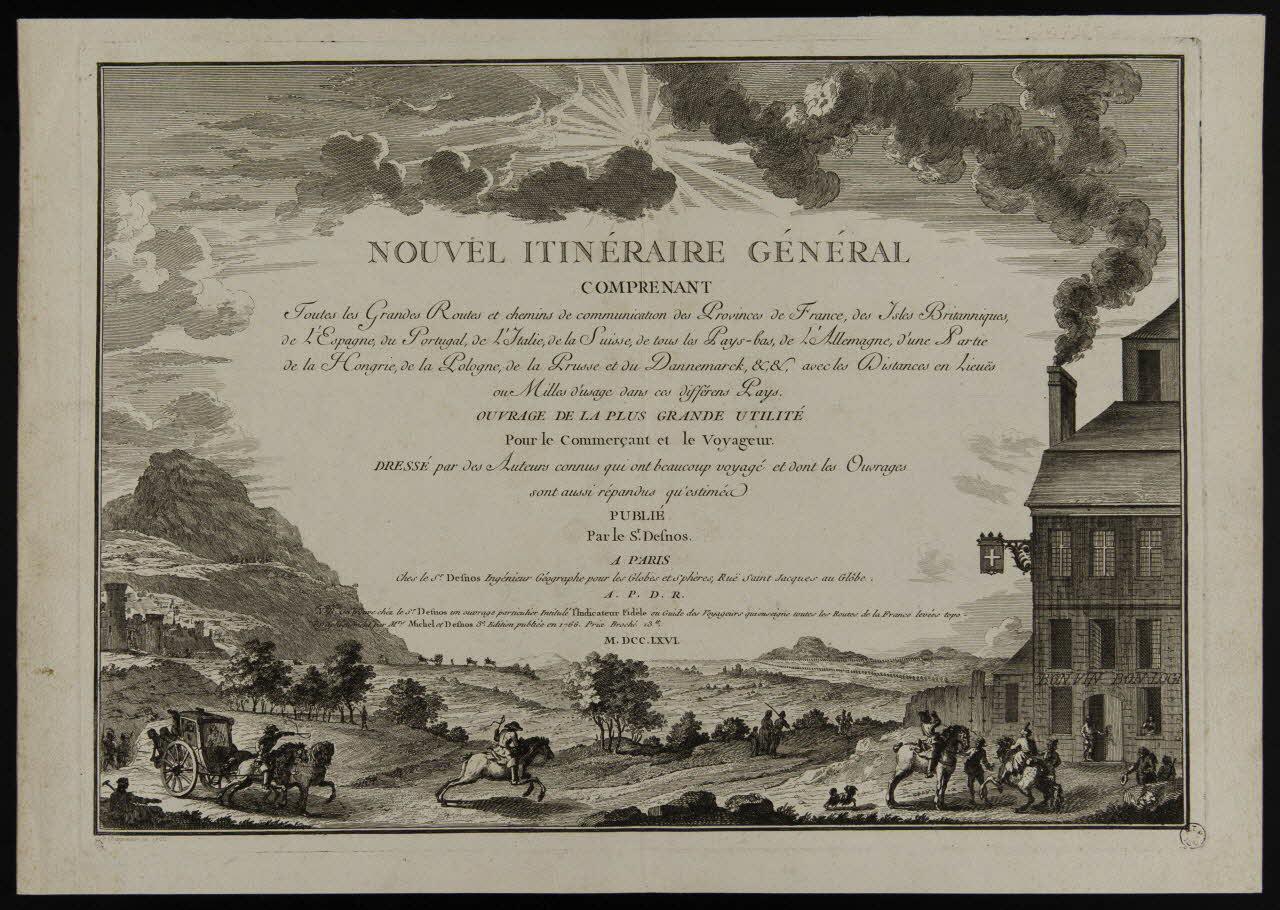 NOUVEL ITINÉRAIRE GÉNÉRAL
COMPRENANT
Toutes les Grandes Routes et chemins de communication des Provinces de France, des Isles Britanniques,
de L'Espagne, du Portugal, de L'Italie, de la Suisse, de tous les Pays-bas, de L'Allemagne, d'une Partie
de la Hongrie, de la Pologne, de la Prusse et du Dannemarck, &&, avec les Distances en Lieuës
ou Milles d'usage dans ces différens Pays.
OUVRAGE DE LA PLUS GRANDE UTILITÉ
Pour le Commerçant et le Voyageur.
DRESSÉ par des Auteurs connus qui ont beaucoup voyagé et dont les Ouvrages
sont aussi répandus qu'estimés
PUBLIÉ
Par le Sr. Desnos.
A PARIS
Chez le Sr. Desnos Ingénieur Géographe pour les Globes et Sphères, Ruë Saint Jacques au Globe.
A. P. D. R.
chéz le Sr. Desnos un ouvrage particulier Intitulé l'Indicateur Fidèle ou Guide des Voyageurs qui enseigne toutes les Routes de la France levées topo-
par Mrs. Michel et Desnos 3e. Edition publiée en 1766. Prix Broché 18
M. DCC. LXVI.
BON VIN BON LOGI